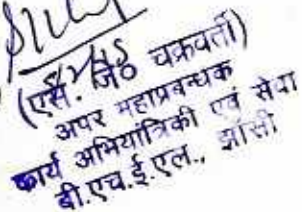 (एस. जे० चक्रवर्ती)
अपर महाप्रबन्धक
कार्य अभियांत्रिकी एवं सेवा
बी.एच.ई.एल., झांसी